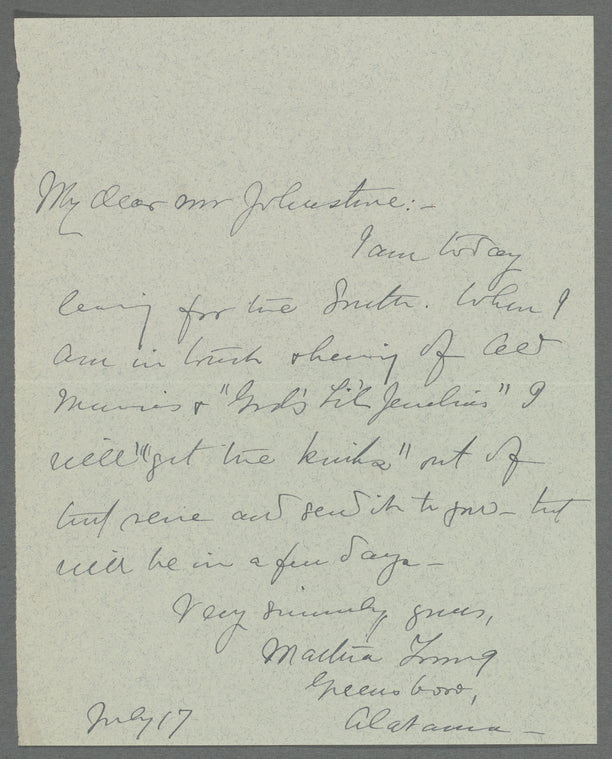 My dear Mr Johnstone:-
I am today
leaving for the South. When I
am in touch & hearing of Old
& "God's Li'l Jewlries" I
will "get the kinks" out of
that and send it to you - that
will be in a few days -
Very sincerely yours,
Martha Young
Greensboro,
July 17 Alabama -